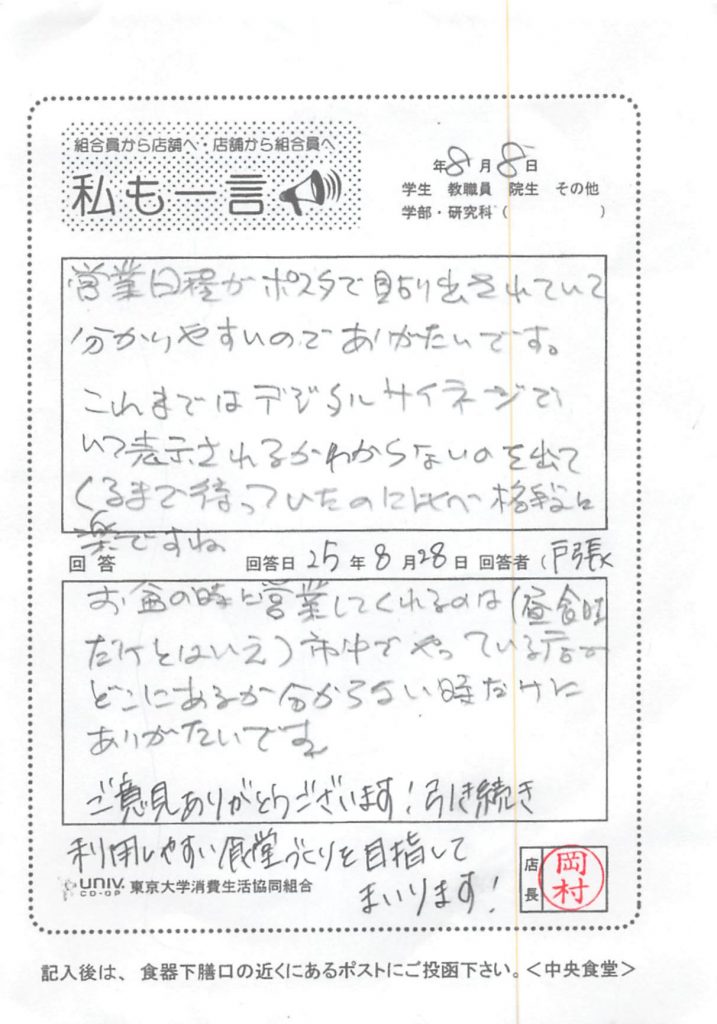 組合員から店舗へ・店舗から組合員へ
私も一言
年8月8日
学生 教職員 院生 その他
学部・研究科（ ）
営業日程がポスタで貼り出されていて
分かりやすいのでありがたいです。
これまではデジタルサイネージで
いつ表示されるかわからないのを出て
くるまで待っていたのに比べ格段に
楽ですね
回答 回答日 25年8月28日 回答者（戸張
お盆の時に営業してくれるのは（昼食時
だけとはいえ）市中でやっている店が
どこにあるか分からない時だけに
ありがたいです
ご意見ありがとうございます！引き続き
利用しやすい食堂づくりを目指して
まいります！
店長 岡村
UNIV. CO-OP 東京大学消費生活協同組合
記入後は、食器下膳口の近くにあるポストにご投函下さい。＜中央食堂＞